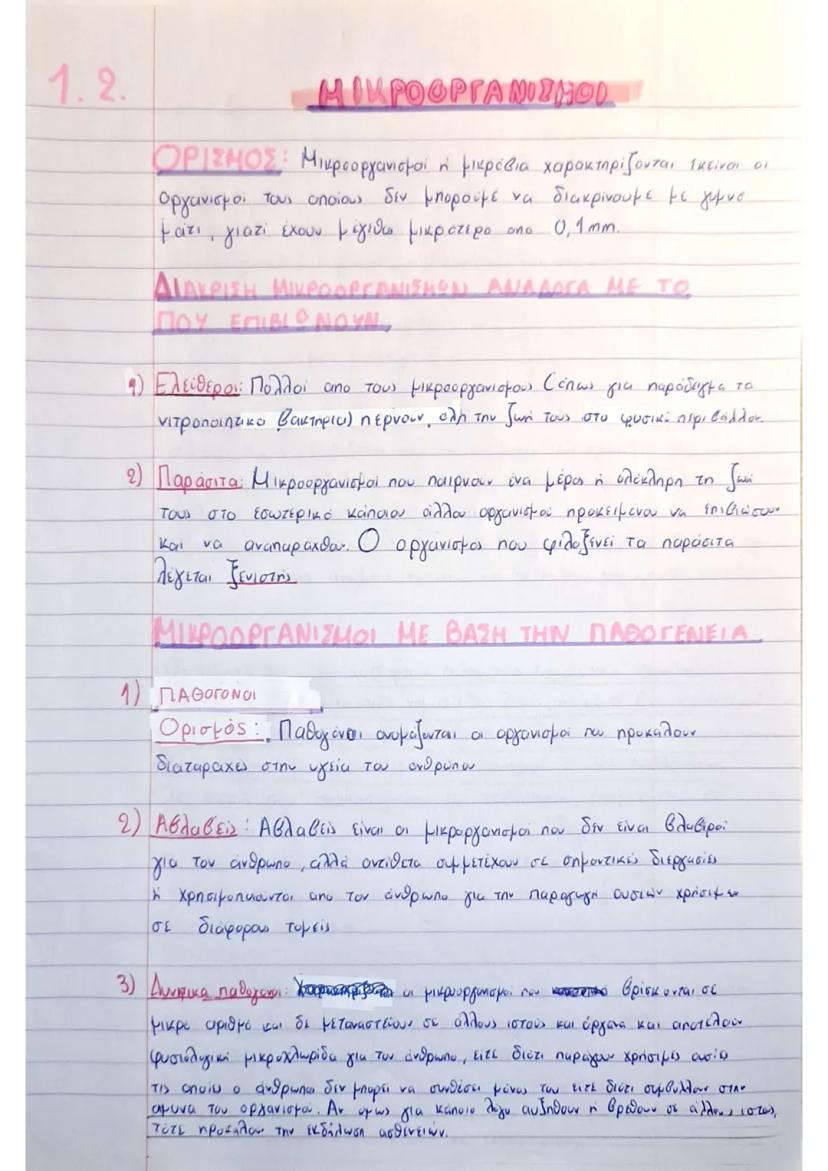 1.2. ΜΙΚΡΟΟΡΓΑΝΙΣΜΟΙ
ΟΡΙΣΜΟΣ: Μικροοργανισμοί ή μικρόβια χαρακτηρίζονται εκείνοι οι
οργανισμοί τους οποίους δεν μπορούμε να διακρίνουμε με γυμνό
μάτι, γιατί έχουν μέγεθος μικρότερο απο 0,1mm.
ΔΙΑΚΡΙΣΗ ΜΙΚΡΟΟΡΓΑΝΙΣΜΩΝ ΑΝΑΛΟΓΑ ΜΕ ΤΟ
ΠΟΥ ΕΠΙΒΙΩΝΟΥΝ
1) Ελεύθεροι: Πολλοί απο τους μικροοργανισμούς (όπως για παράδειγμα τα
νιτροποιητικά βακτήρια) περνούν όλη την ζωή τους στο φυσικό περιβάλλον.
2) Παράσιτα: Μικροοργανισμοί που παιρνούν ένα μέρος ή ολόκληρη τη ζωή
τους στο εσωτερικό κάποιου άλλου οργανισμού προκειμένου να επιβιώσουν
και να αναπαραχθούν. Ο οργανισμός που φιλοξενεί τα παράσιτα
λέγεται ξενιστής
ΜΙΚΡΟΟΡΓΑΝΙΣΜΟΙ ΜΕ ΒΑΣΗ ΤΗΝ ΠΑΘΟΓΕΝΕΙΑ
1) ΠΑΘΟΓΟΝΟΙ
Ορισμός: Παθογόνοι ονομάζονται οι οργανισμοί που προκαλούν
διαταραχές στην υγεία του ανθρώπου
2) Αβλαβείς: Αβλαβείς είναι οι μικροοργανισμοί που δεν είναι βλαβεροί
για τον άνθρωπο, αλλά αντίθετα συμμετέχουν σε σημαντικές διεργασίες
ή χρησιμοποιούνται απο τον άνθρωπο για την παραγωγή ουσιών χρήσιμων
σε διάφορους τομείς
3) Δυνητικά παθογόνοι: οι μικροοργανισμοί που βρίσκονται σε
μικρό αριθμό και δε μεταναστεύουν σε άλλους ιστούς και όργανα και αποτελούν
φυσιολογική μικροχλωρίδα για τον άνθρωπο, είτε διότι παράγουν χρήσιμες ουσίες
τις οποίες ο άνθρωπος δεν μπορεί να συνθέσει μόνος του είτε διότι συμβάλλουν στην
άμυνα του οργανισμού. Αν όμως για κάποιο λόγο αυξηθούν ή βρεθούν σε άλλους ιστούς,
τότε προκαλούν την εκδήλωση ασθενειών.